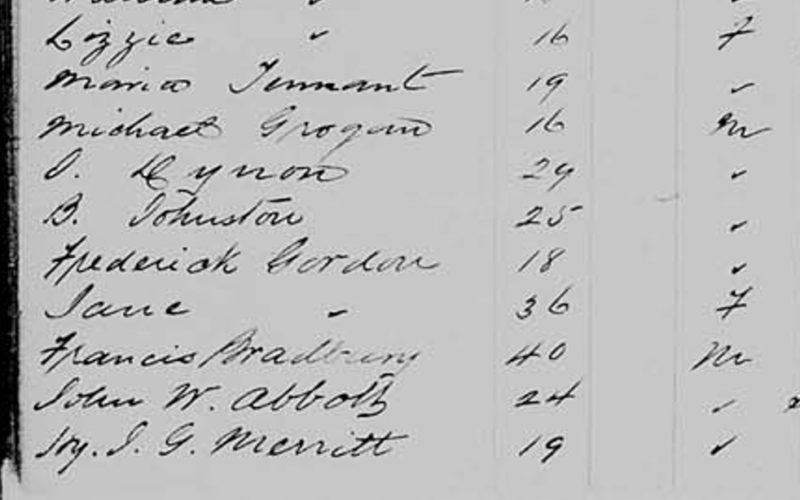 Lizzie " 16 F
Maria Tennant 19 "
Michael Grogan 16 M
29 "
B. Johnston 25 "
Frederick Gordon 18 "
Jane " 36 F
Francis Bradbury 40 M
John W. Abbott 24 "
G. Merritt 19 "